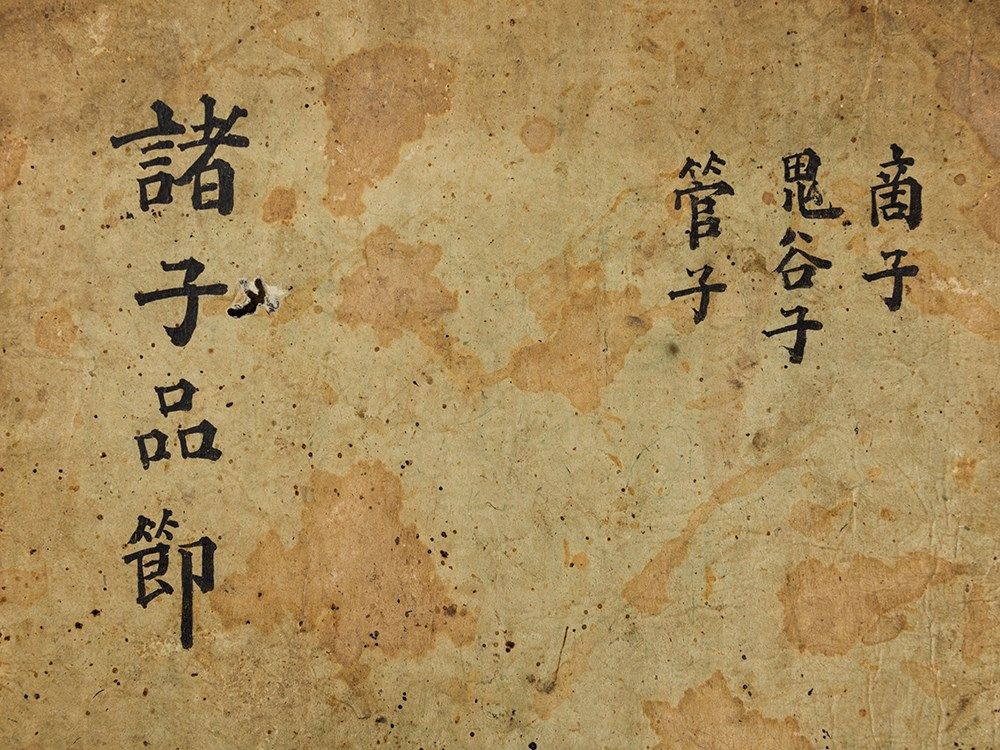 商子
鬼谷子
管子
諸子品節